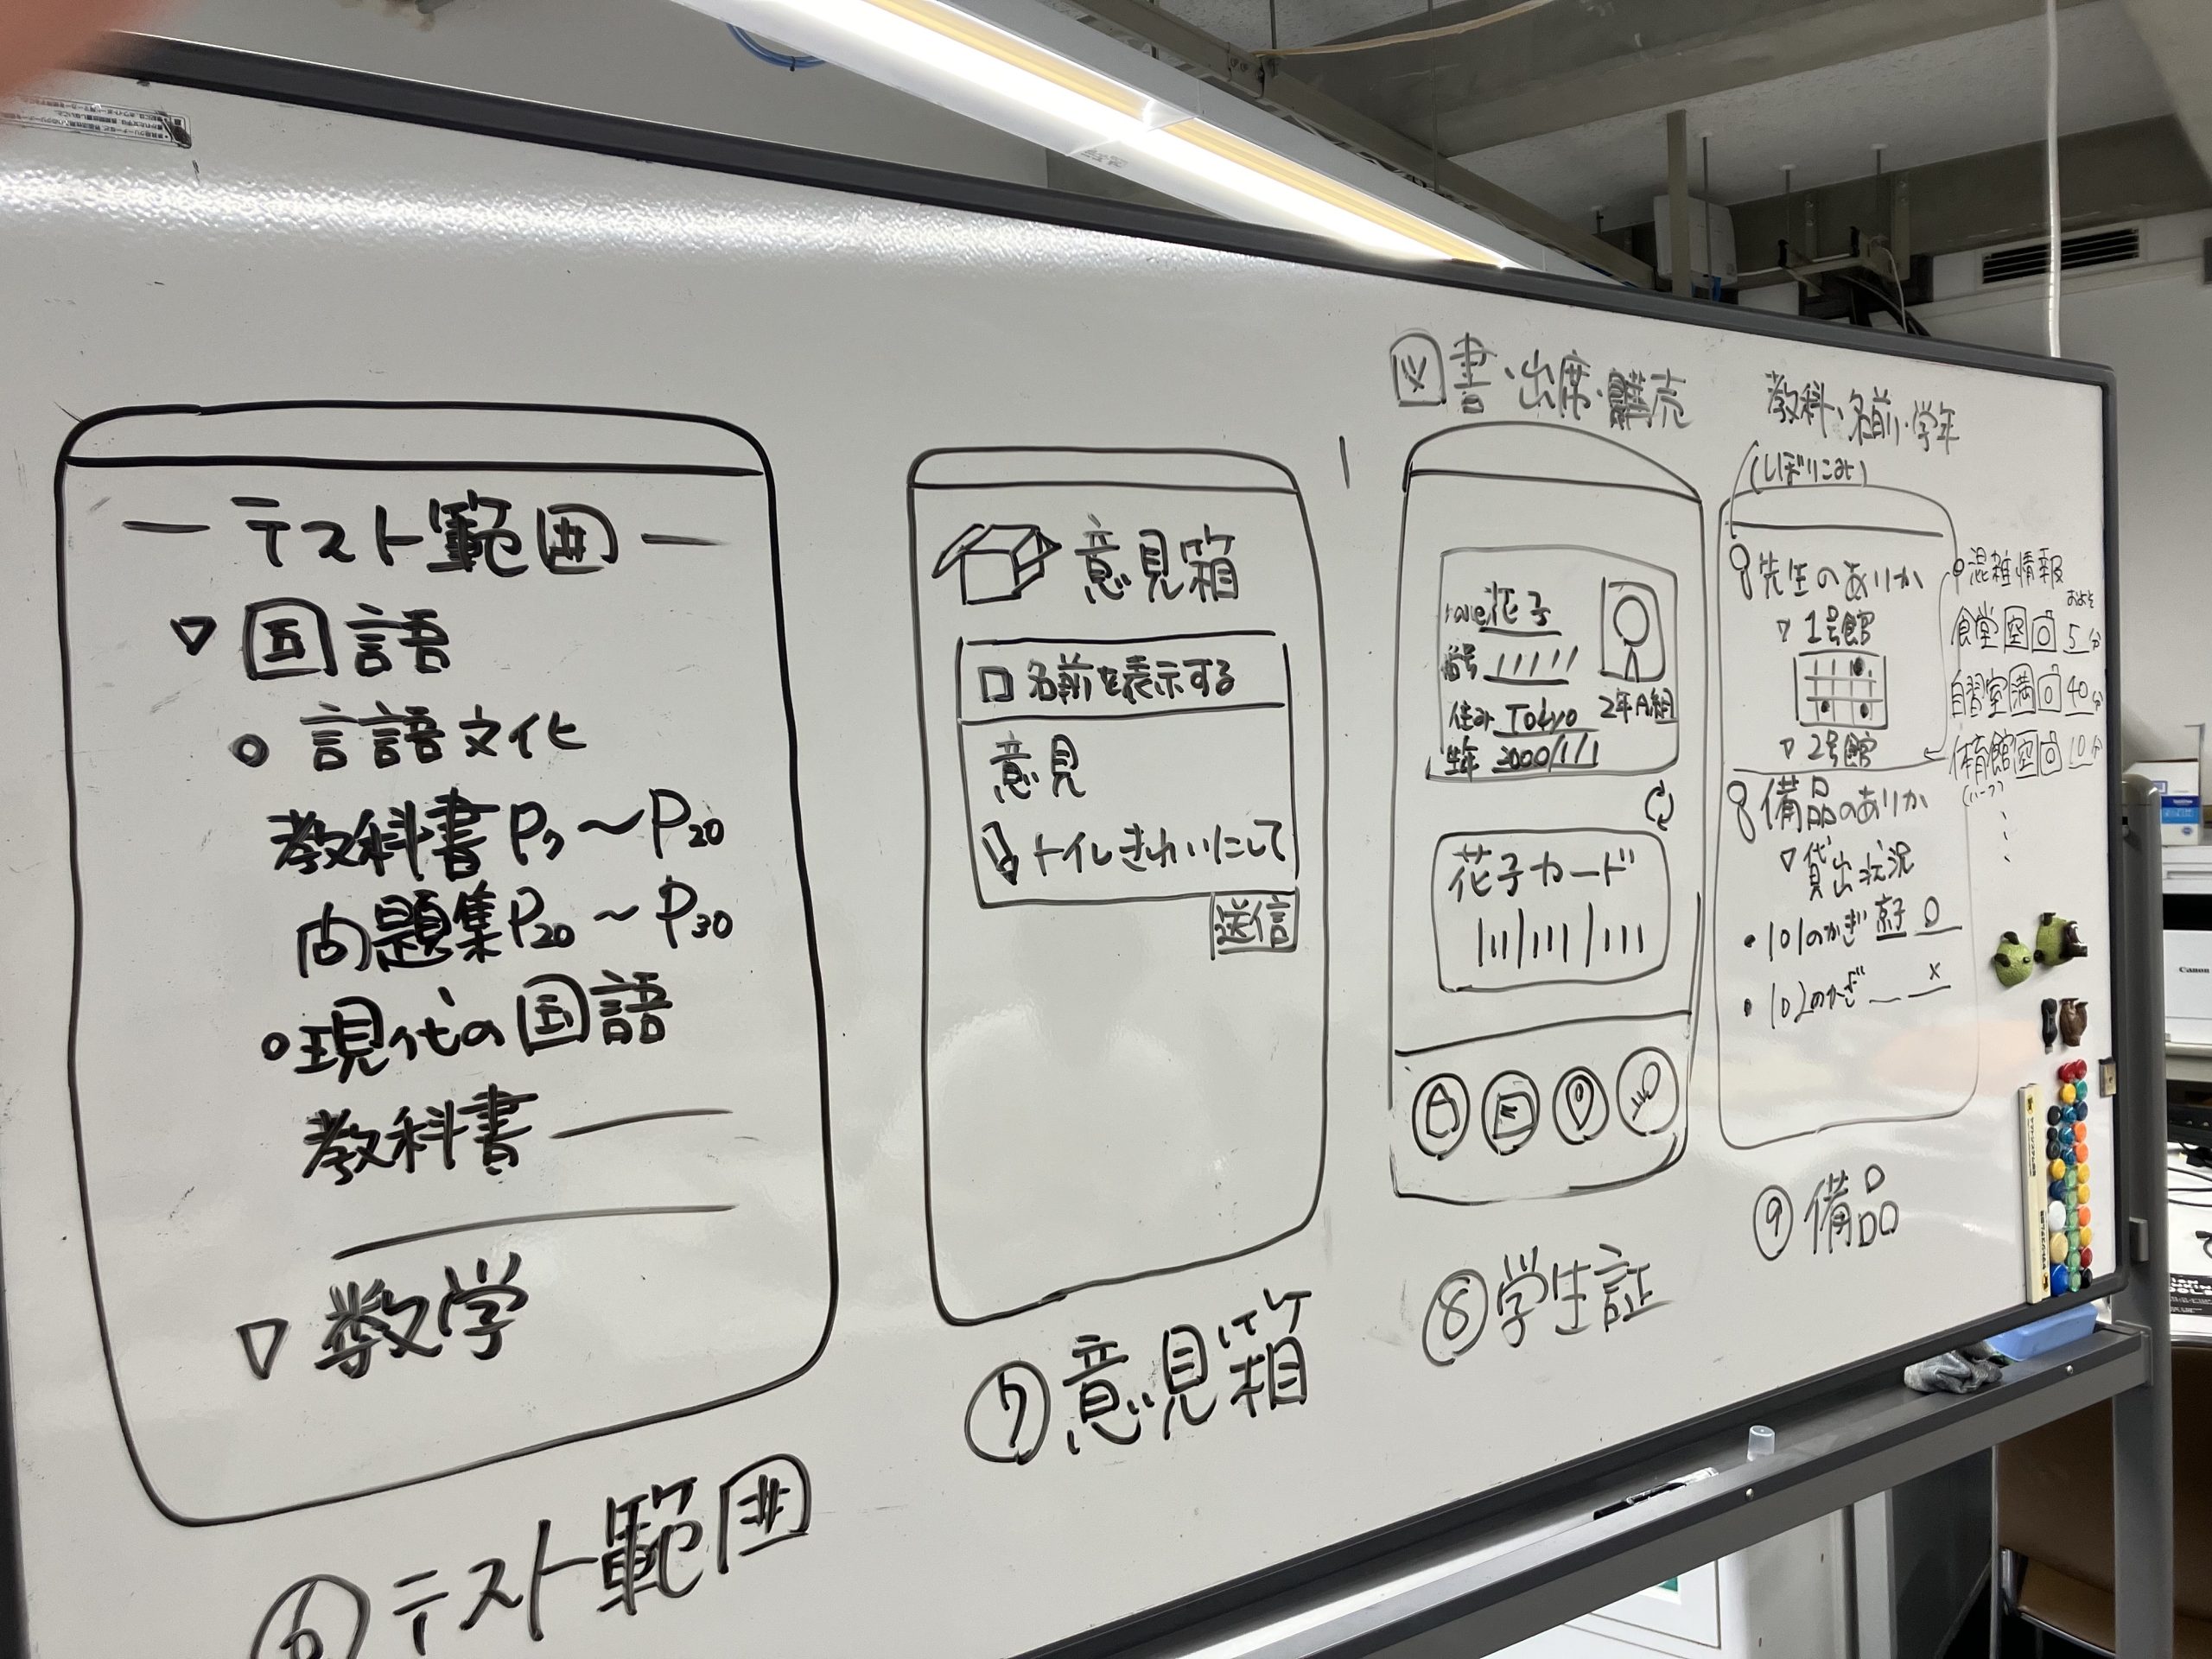 ーテスト範囲ー
▽国語
○言語文化
教科書P7〜P20
問題集P20〜P30
○現代の国語
教科書
▽数学
⑥テスト範囲
意見箱
□名前を表示する
意見
トイレきれいにして
送信
⑦意見箱
図書・出席・購売
花子
番号
住み Tokyo
2年A組
生年 2000/1/1
花子カード
⑧学生証
教科・名前・学年
(しぼりこみ)
先生のありか
▽1号館
▽2号館
備品のありか
▽貸出状況
・101のかぎ 京子 ○
・102のかぎ ×
混雑情報
およそ
食堂 空 5分
自習室 満 40分
体育館 空 10分
⑨備品
Canon